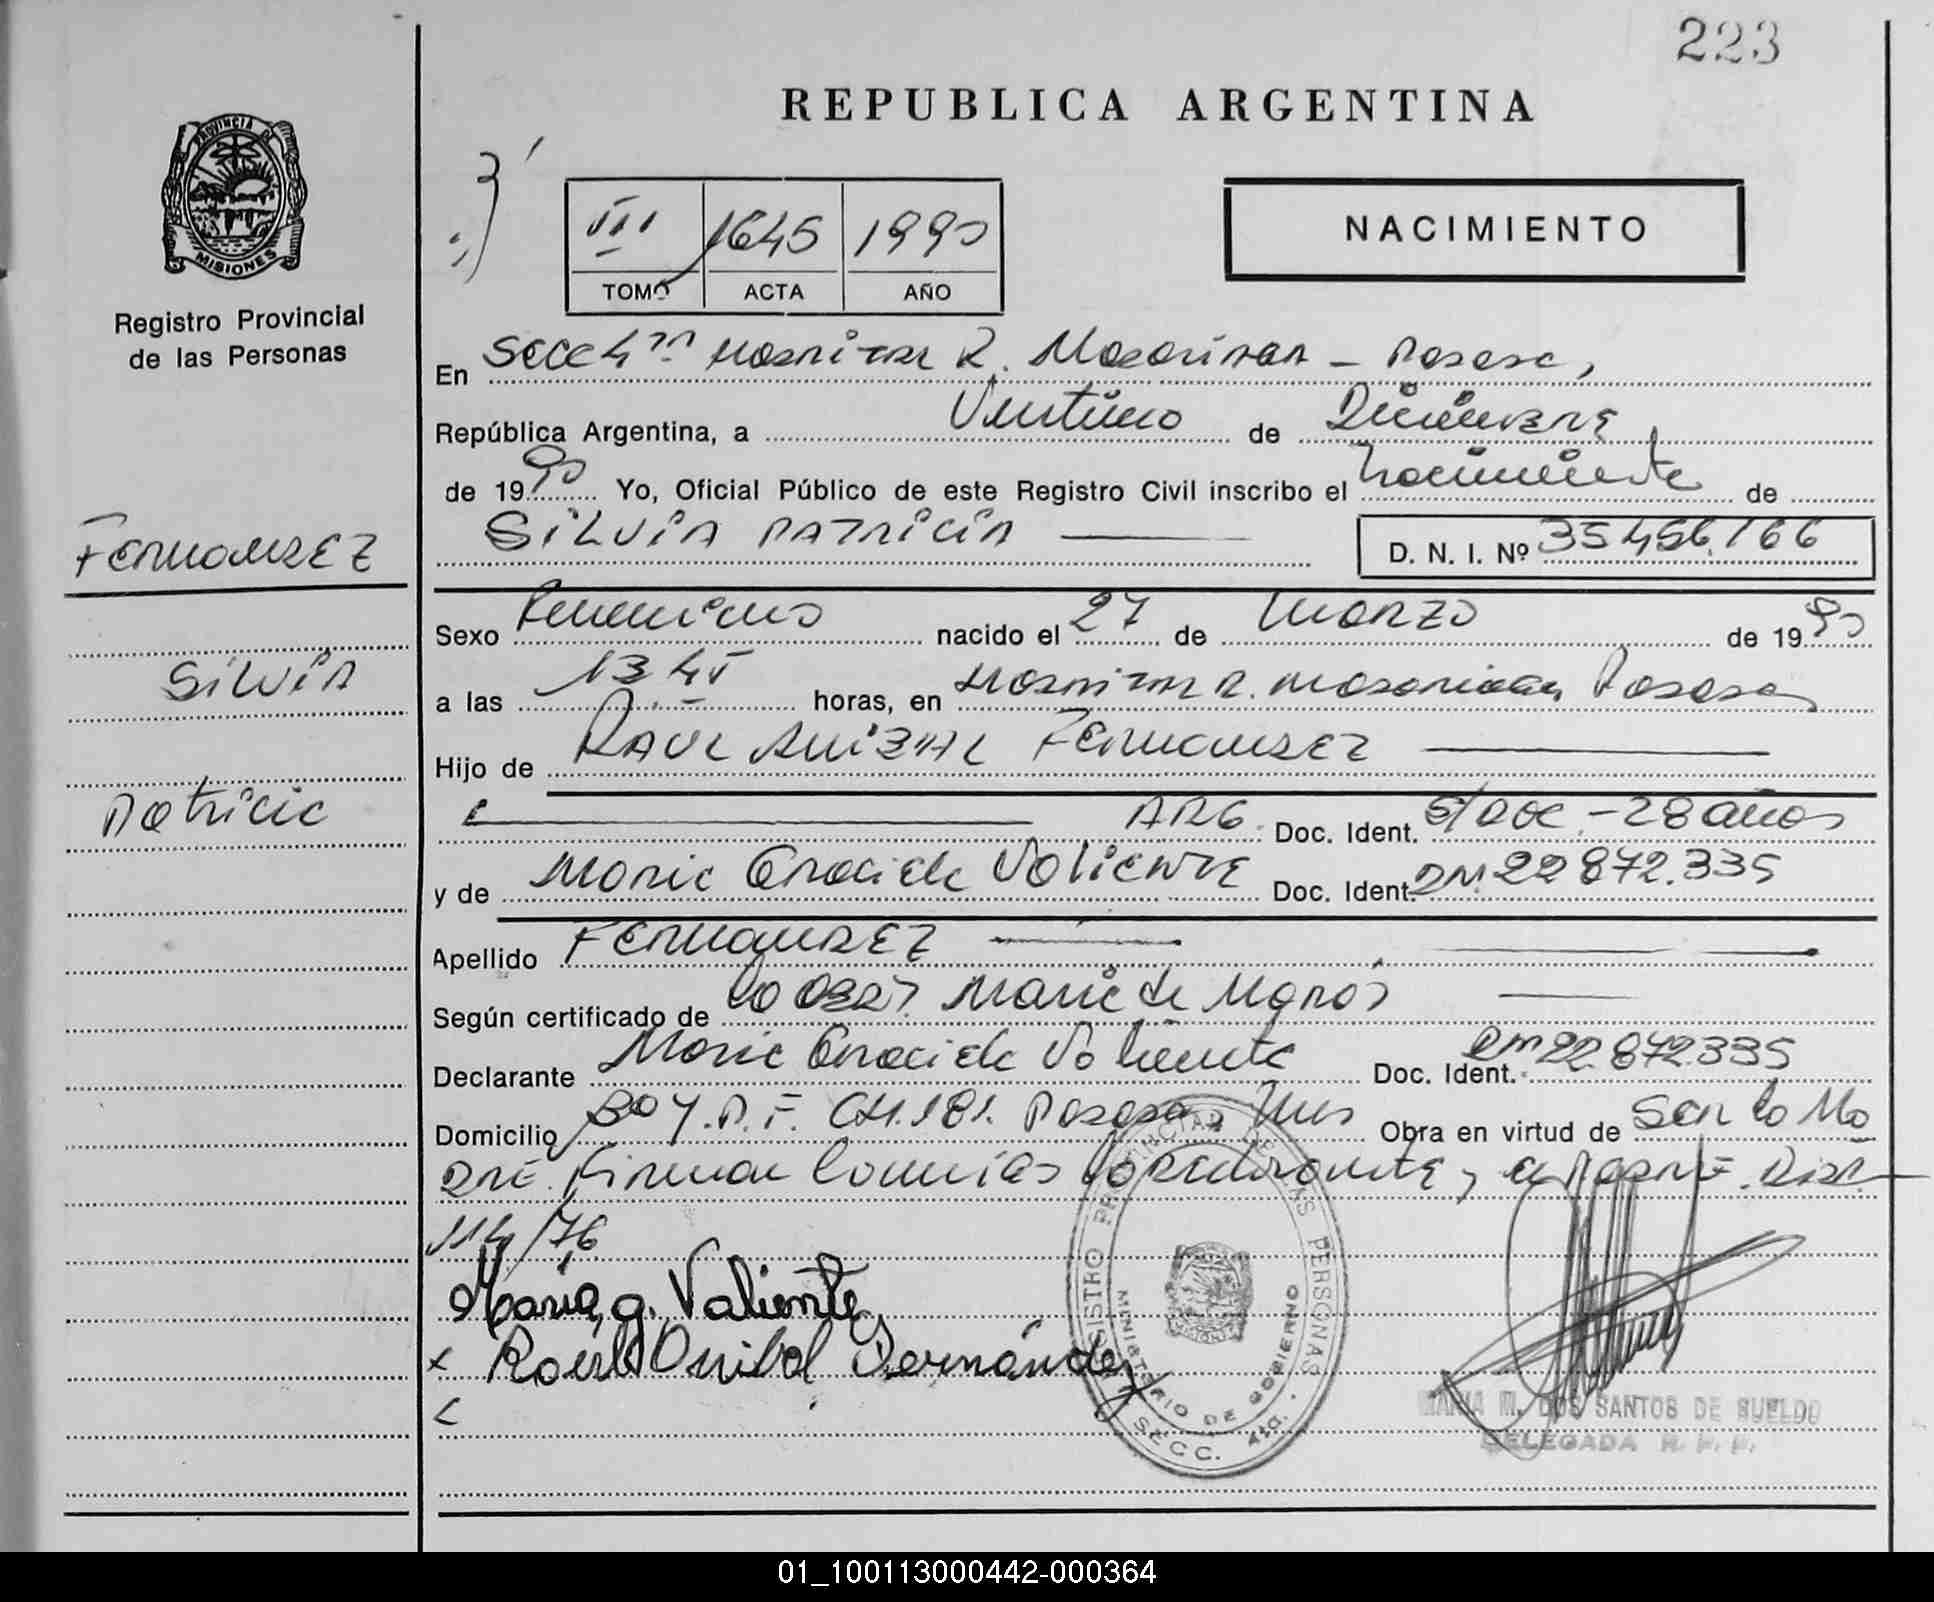 223
REPUBLICA ARGENTINA
PROVINCIA DE
MISIONES
Registro Provincial
de las Personas
III 1645 1990
TOMO ACTA AÑO
NACIMIENTO
En Secc 4ta Hospital R. Madariaga - Posadas,
República Argentina, a Ventiuno de Diciembre
de 1990 Yo, Oficial Público de este Registro Civil inscribo el nacimiento de
SILVIA PATRICIA
D. N. I. Nº 35.456.166
FERNANDEZ
SILVIA
Patricia
Sexo Femenino nacido el 27 de Marzo de 1990
a las 13 45 horas, en Hospital R. Madariaga, Posadas
Hijo de RAUL ANIBAL FERNANDEZ
ARG. Doc. Ident. S/DOC - 28 años
y de Maria Graciela VALIENTE Doc. Ident. DNI 22 872.335
Apellido FERNANDEZ
Según certificado de Maria de
Declarante Maria Graciela Valiente Doc. Ident. DNI 22.872.335
Domicilio Bo Y.P.F. CH.181. Posadas, Mns Obra en virtud de Ser la Ma
dre. Firman conmigo la declarante, el Padre. Disp.
114/76
María g. Valiente
x Raúl Anibal Fernández
REGISTRO PROVINCIAL DE LAS PERSONAS
MINISTERIO DE GOBIERNO
SECC. 4ta.
MARIA M. DOS SANTOS DE SUELDO
DELEGADA R. P. P.
01_100113000442-000364